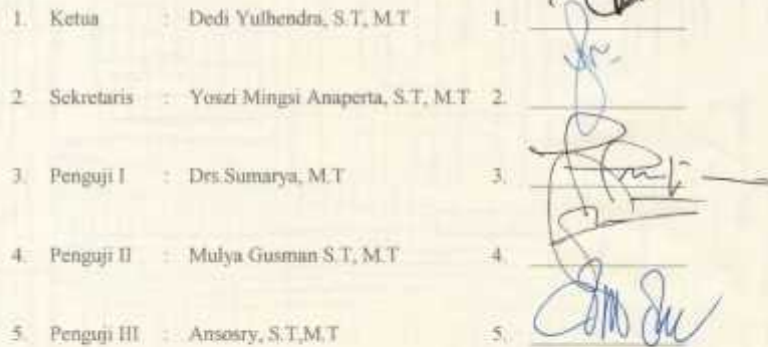 1. Ketua : Dedi Yulhendra, S.T, M.T 1.
2. Sekretaris : Yoszi Mingsi Anaperta, S.T, M.T 2.
3. Penguji I : Drs.Sumarya, M.T 3.
4. Penguji II : Mulya Gusman S.T, M.T 4.
5. Penguji III : Ansosry, S.T,M.T 5.